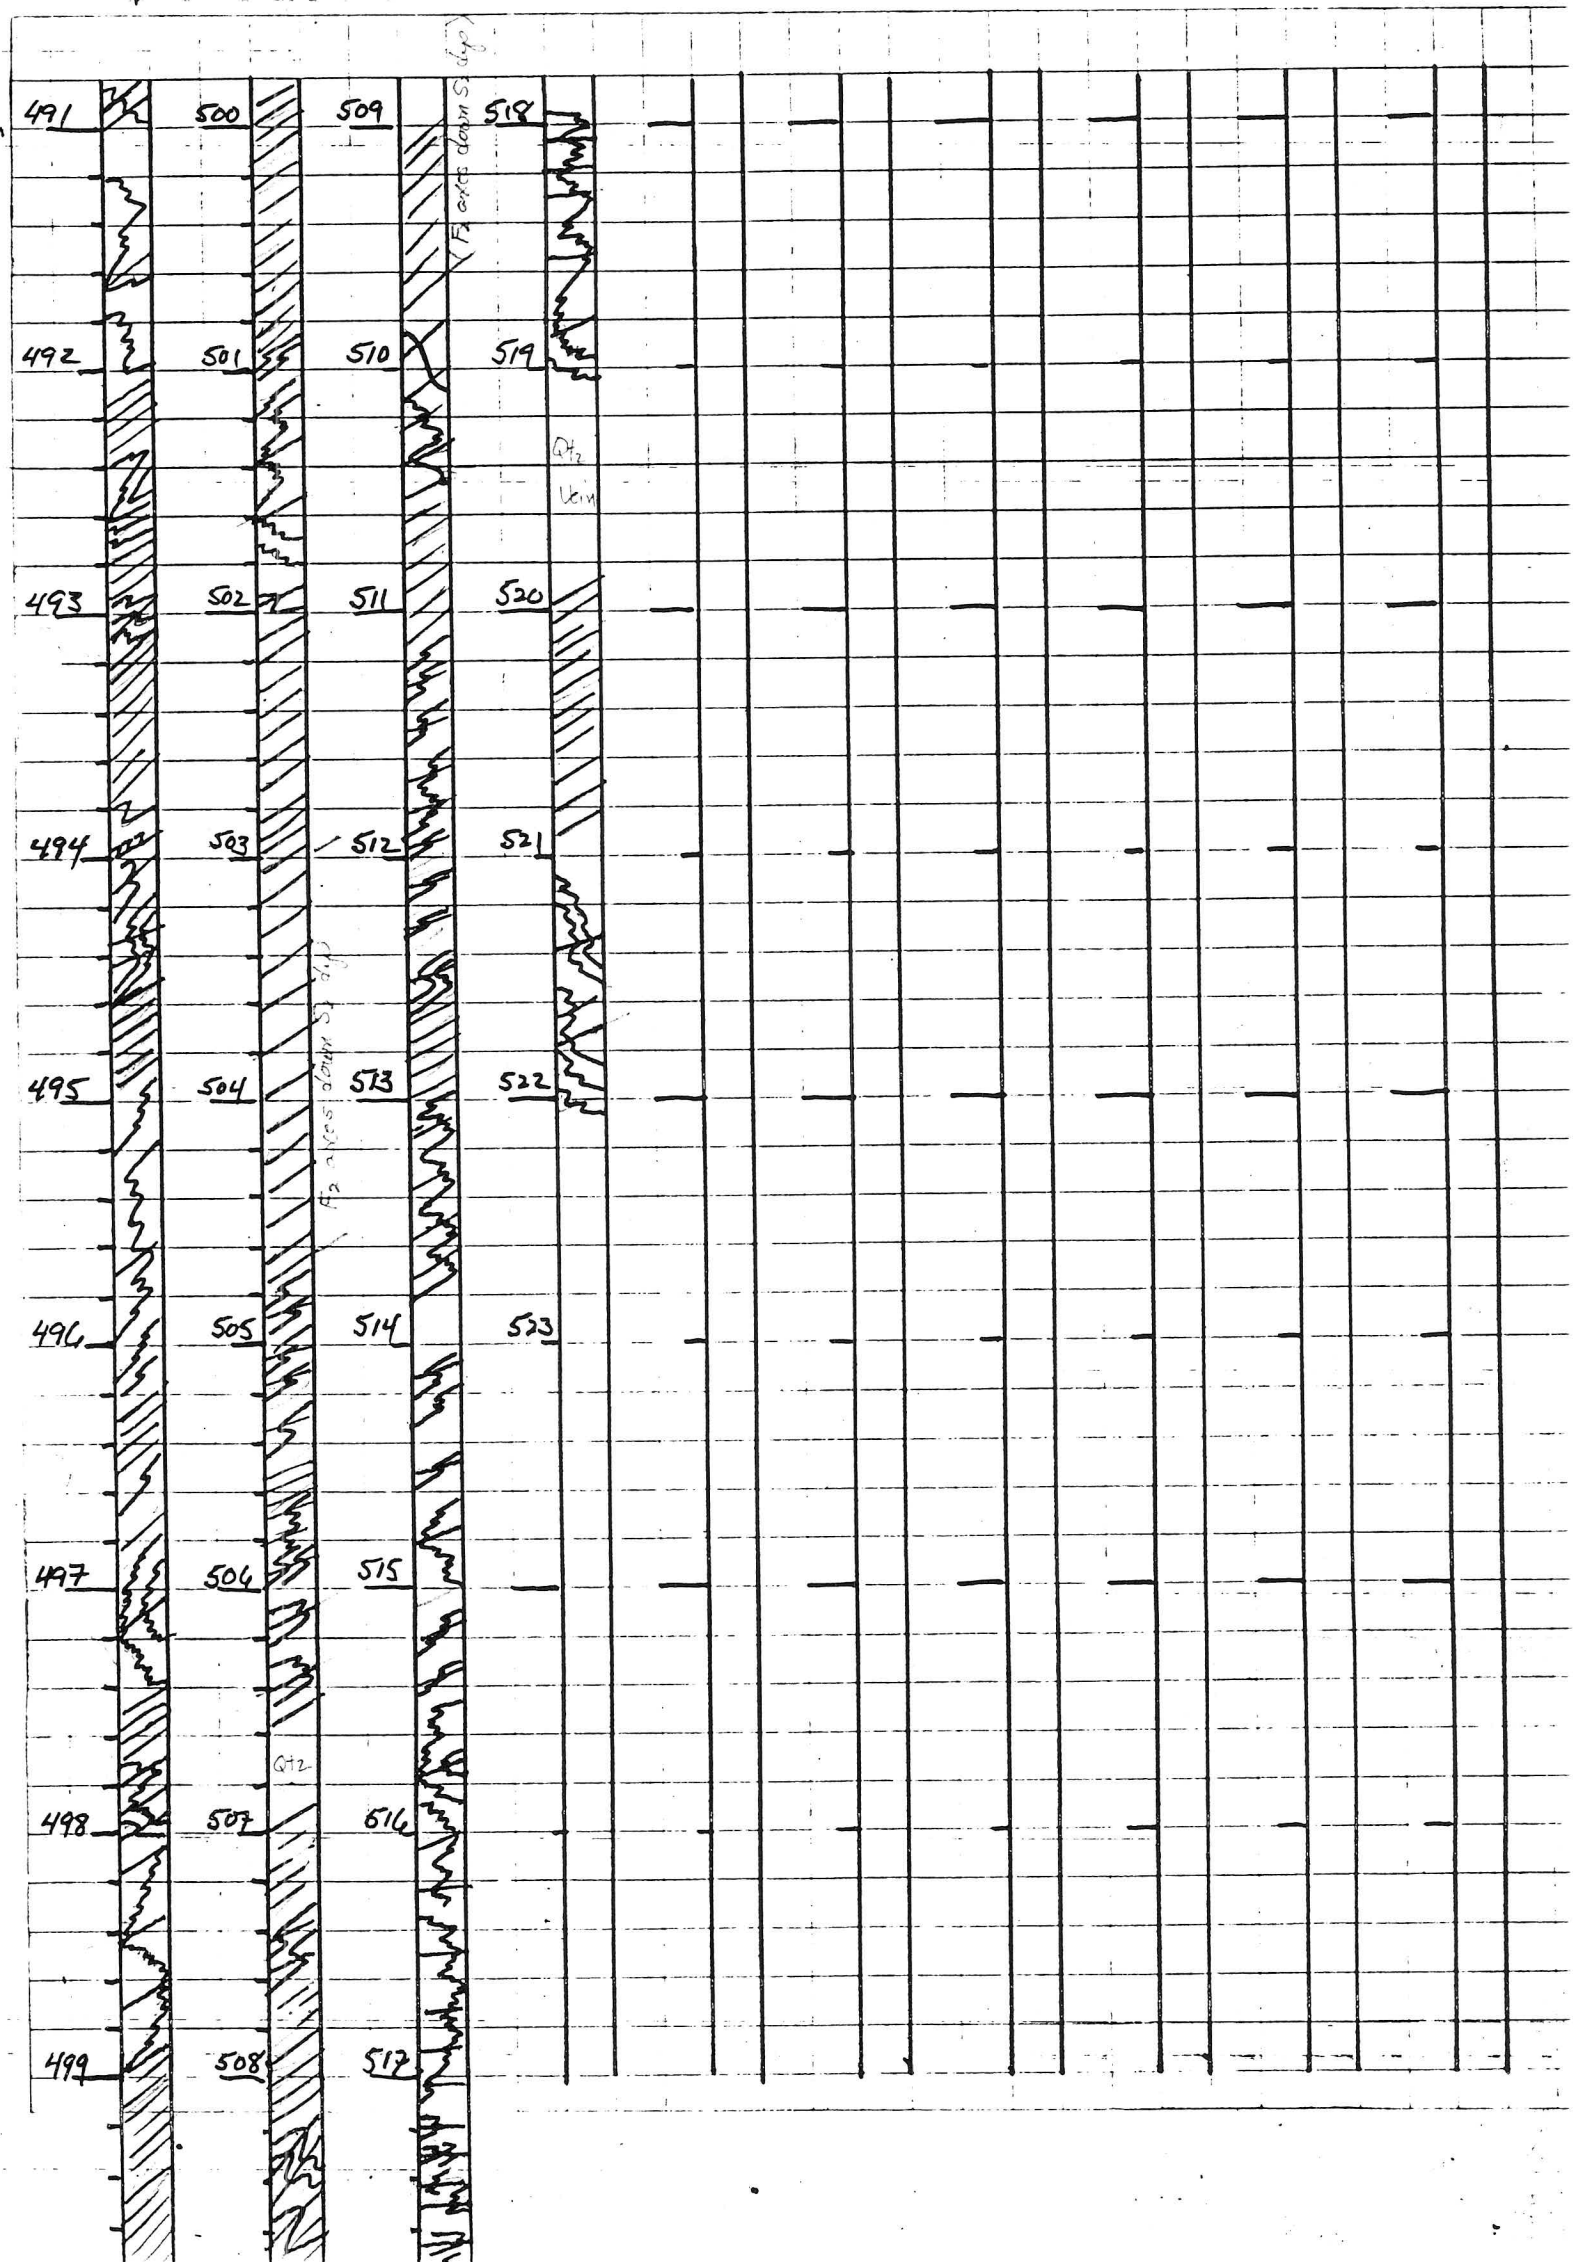 491
492
493
494
495
496
497
498
499
500
501
502
503
504
505
506
Qtz
507
508
F2 axes down S2 dip
509
510
511
512
513
514
515
516
517
(F2 axes down S2 dip)
518
519
Qtz
Vein
520
521
522
523